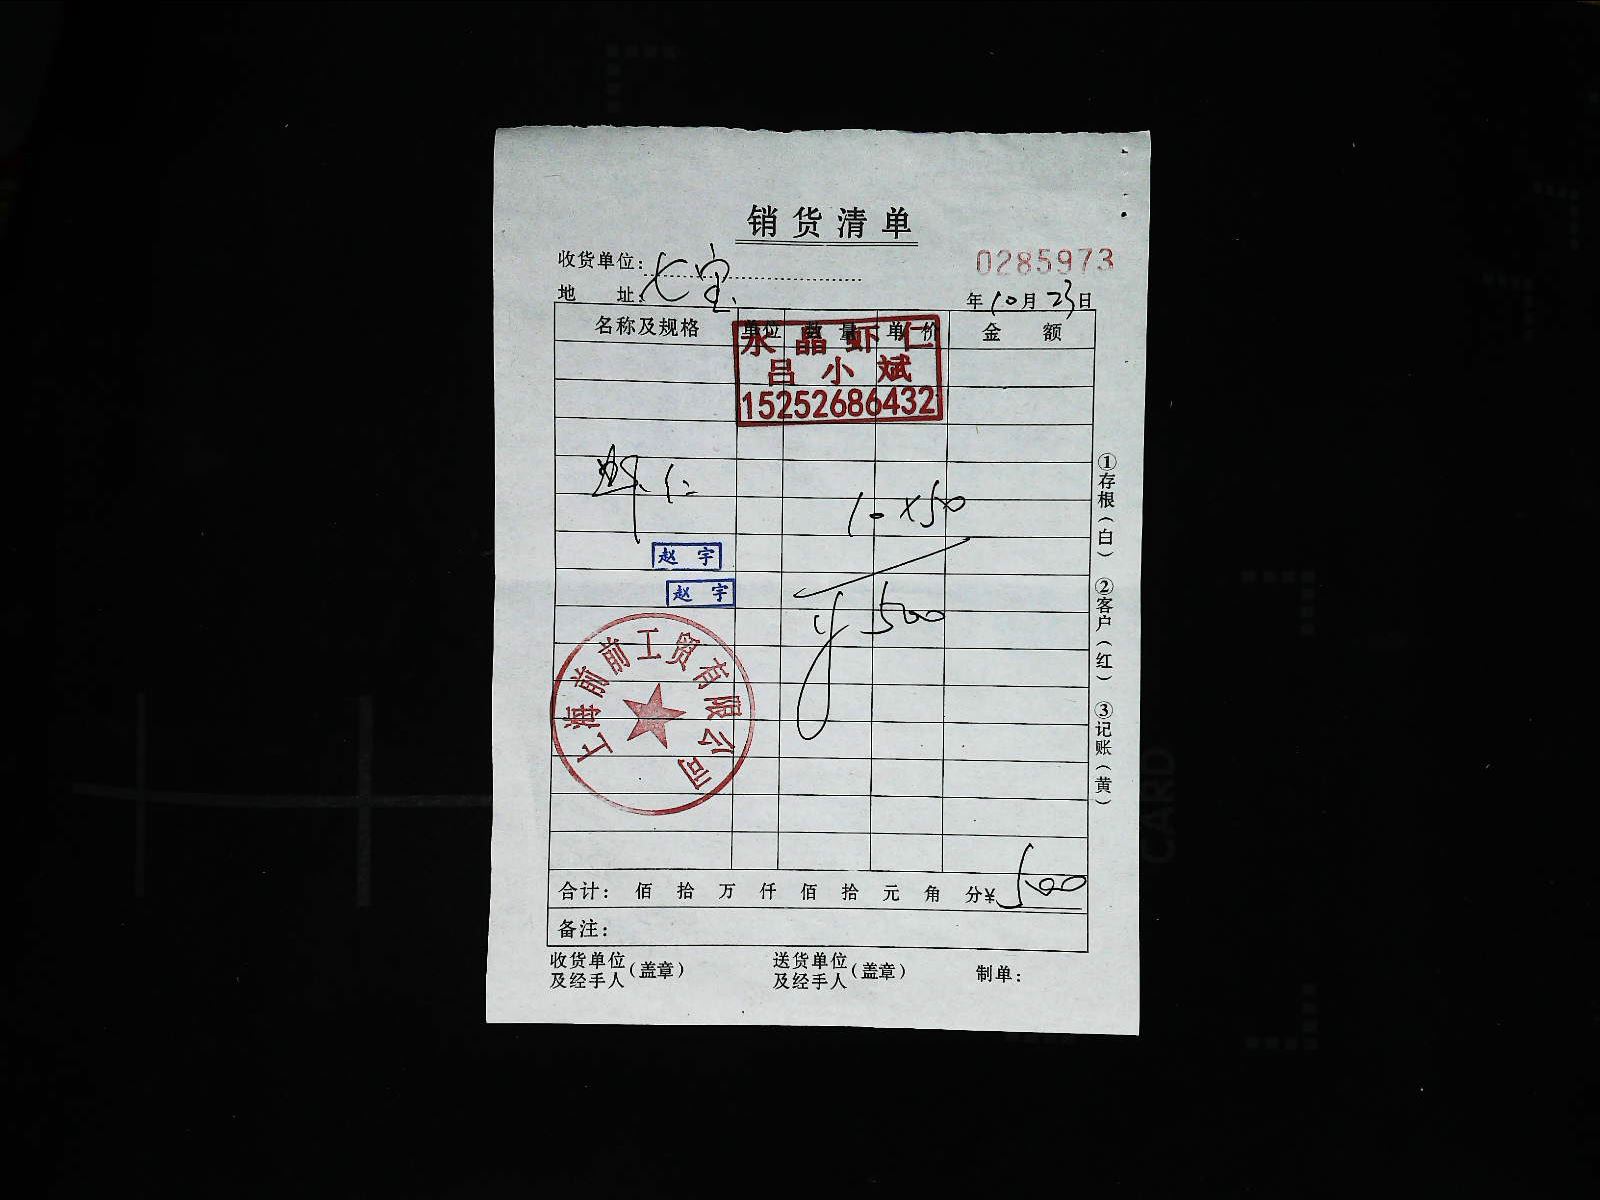 销货清单
收货单位：七宝
0285973
地 址：
年10月23日
名称及规格 单位 数量 单价 金额
永晶虾仁
吕小斌
15252686432
虾仁
10×50
赵宇
赵宇
¥500
上海前前工贸有限公司
合计： 佰 拾 万 仟 佰 拾 元 角 分¥500
备注：
收货单位及经手人（盖章）
送货单位及经手人（盖章）
制单：
①存根（白） ②客户（红） ③记账（黄）
CARD